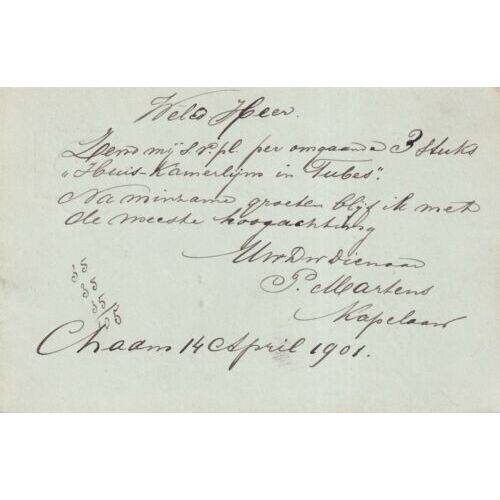 WelEd Heer.
Zend mij s.v.pl. per omgaande 3 stuks
"Huis-Kamerlijm in Tubes".
Na minzame groeten blijf ik met
de meeste hoogachting
Uw Dw Dienaar
P. Martens
Kapelaan
35
35
35
105
Chaam 14 April 1901.